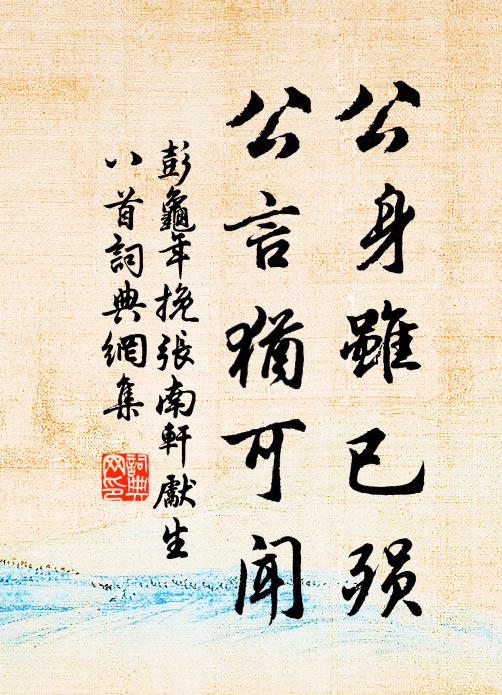 公身雖已殞
公言猶可聞
彭龜年挽張南軒獻生
八首詞典網集
詞典
网印